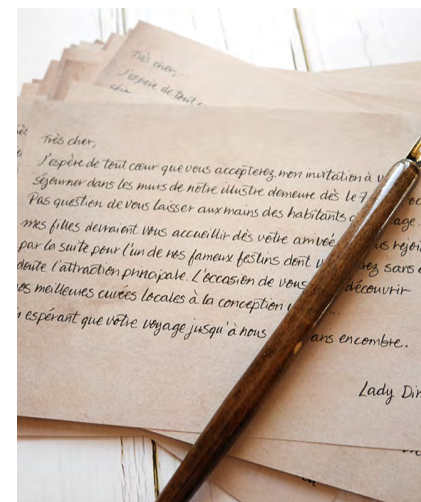 Très cher,
J'espère de tout
Très cher,
J'espère de tout cœur que vous accepterez mon invitation à
séjourner dans les murs de notre illustre demeure dès le 7
Pas question de vous laisser aux mains des habitants
mes filles devraient vous accueillir dès votre arrivée
par la suite pour l'un de nos fameux festins dont
doute l'attraction principale. L'occasion de vous découvrir
meilleures cuvées locales à la conception
espérant que votre voyage jusqu'à nous encombre.
Lady